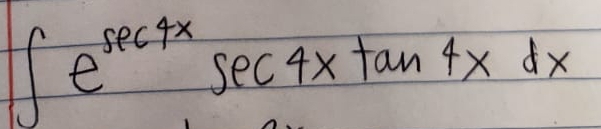 ∫ e^{sec 4x} sec 4x tan 4x dx